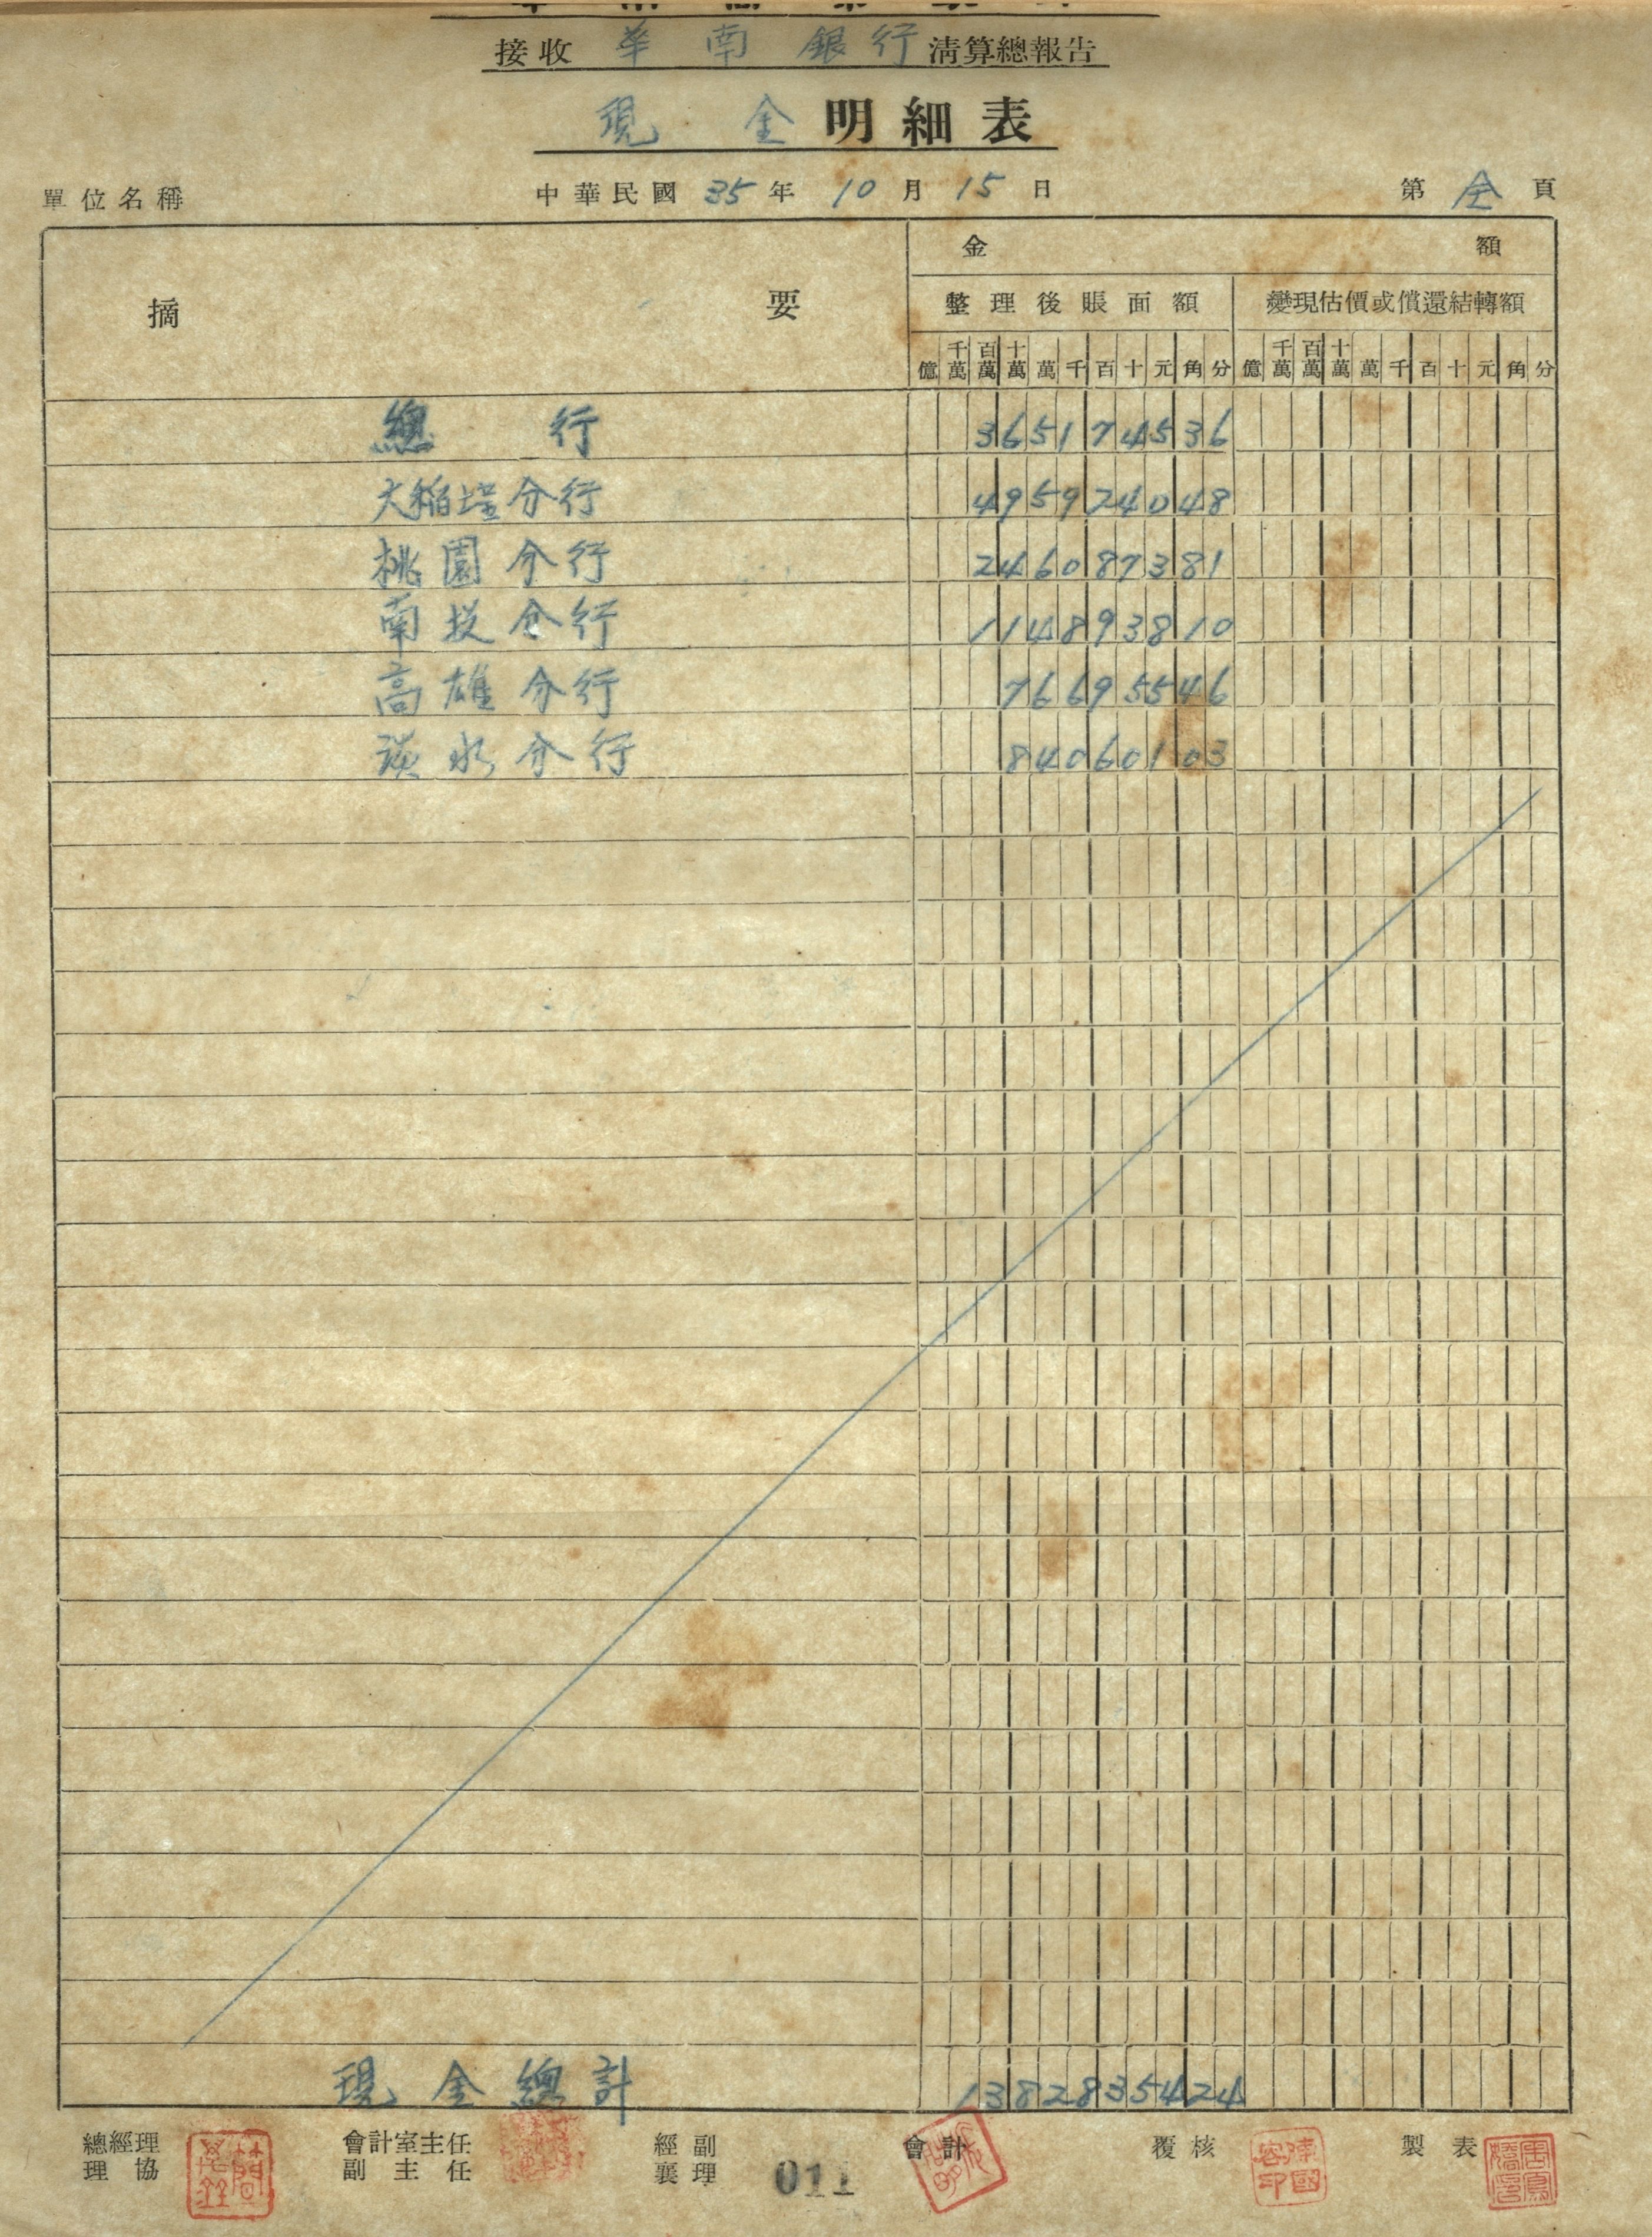 接收 華南銀行 清算總報告
現金明細表
單位名稱 中華民國 35 年 10 月 15 日 第 全 頁
摘要 金額
整理後賬面額 變現估價或償還結轉額
億 千萬 百萬 十萬 萬 千 百 十 元 角 分 億 千萬 百萬 十萬 萬 千 百 十 元 角 分
總行 365174536
大稻埕分行 495924048
桃園分行 246087381
南投分行 114893810
高雄分行 76695546
淡水分行 84060103
現金總計 1382835424
總經理 會計室主任 經副 會計 覆核 製表
理協 副主任 襄理
011
陳國容印